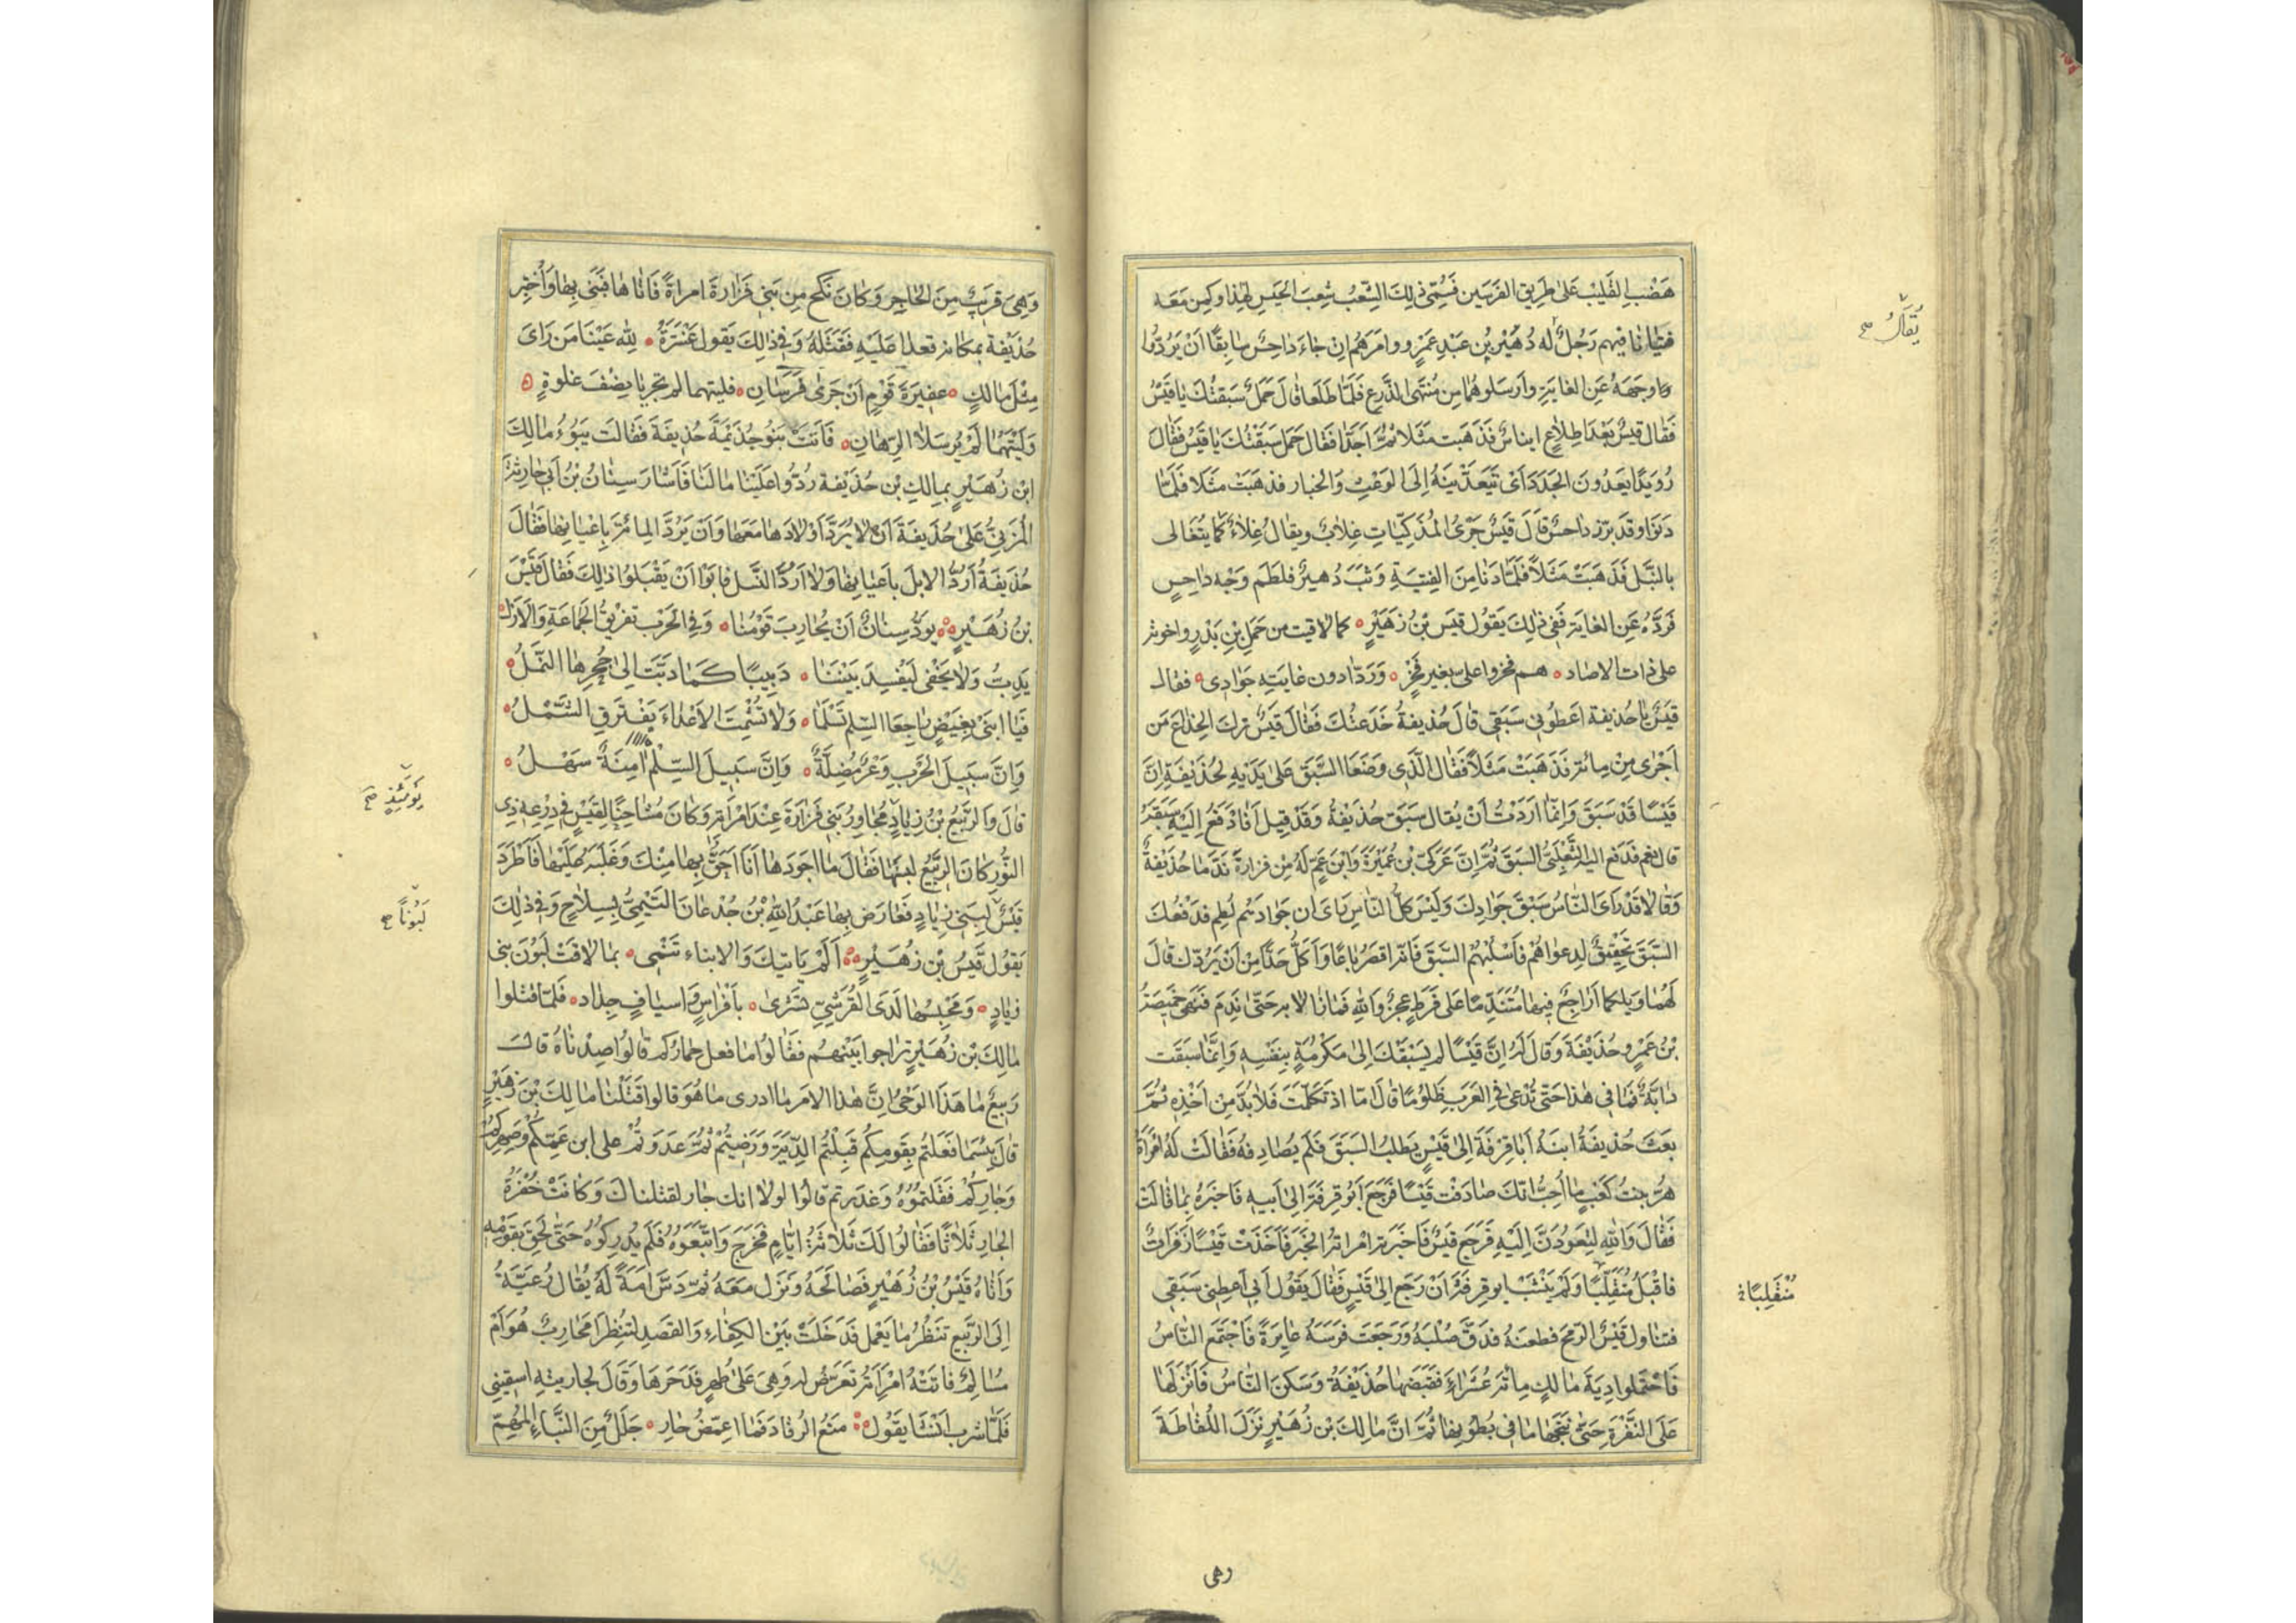 هَضْبِ القَلِيْبِ عَلىٰ طَرِيقِ الفَرَسَين فَسُمِّيَ ذٰلِكَ الشِّعْبُ شِعبَ الحَيْسِ لِهٰذا وكمن مَعَه
فتيانا فيهم رَجُلٌ له دُهَيْر بْن عَبْدِ عَمْرٍو وامَرَهُم ان جَاءَ دٰاحِسٌ سٰابِقًا اَنْ يَرُدُّوا
وجهَهُ عَنِ الغَايَةِ واَرسَلُوهُمٰا مِن مُنْتَهَى الذَّرْعِ فَلَمّا طَلَعا قالَ حَمَلٌ سَبَقْتُكَ يٰا قَيْسُ
فَقال قيسٌ بَعْدَ اِطِلاعٍ ايناسٌ فَذَهَبت مَثَلا ثُمَّ اَجَدّا فَقال حَمَل سَبَقْتُكَ يا قَيْسُ فَقالَ
رُوَيْدًا يَعدُونَ الجَدَدَ اَى تَتَعَدَّيْنَهُ اِلَى الوَعْثِ وَالخبار فذهَبَتْ مَثَلا فَلَمّا
دَنَوَا وقد برَزَ داحسٌ قالَ قَيْسٌ جَرْىُ المُذَكِّيٰاتِ غِلابٌ ويقالُ غِلاءٌ كَما يُتَغٰالى
بالنَّبل فَذَهَبَتْ مَثَلاً فَلَمّا دَنٰا مِنَ الفِتيَةِ وَثَبَ دُهيرٌ فلطَم وَجْه دٰاحِسٍ
فَرَدَّهُ عَنِ الغايَة فَفِي ذٰلِكَ يَقولُ قيسُ بْنُ زُهَيْرٍ كما لاقيت من حَمَلِ بْنِ بَدْرٍ واخوته
على ذات الاصاد هم فخروا على بغير فَخْرٍ وَرَدّوا دون غايَتِهِ جَوادِى فقال
قيسٌ يٰا حُذيفة اعَطُونى سَبَقِى قالَ حُذيفةُ خَدَعتُكَ فَقالَ قيسٌ ترك الخِداعَ مَن
اَجْرٰى مِنْ مِائة فَذَهَبَتْ مَثَلاً فَقال الَّذى وَضَعَا السَّبَقَ عَلىٰ يَدَيْهِ لِحُذَيْفَةَ اِنَّ
قَيْسًا قَدْ سَبَقَ وَاِنَّما اَرَدْتُ اَنْ يُقال سَبَقَ حُذَيْفَةُ وَقَدْ قيل اَفَادْفَعُ اِلَيْهِ سَبَقَهُ
قال نعم فدفع اليه الثَّعْلَبِىُّ السَبَقَ ثُمَّ اِنَّ عَرَكىَّ بْن عُمَيْرَةَ وَابنَ عَمٍّ لَهُ مِن فزارةَ نَدَّمٰا حُذيفةَ
وقالا قَدْ رَاَى النَّاسُ سَبْقَ جَوادِكَ وَلَيْسَ كلُّ النٰاسِ رَاى ان جوادهم لُطِم فدفعُكَ
السَبَقَ تحْقيقٌ لِدعواهُم فَاسْلُبْهُم السَبَقَ فانّه اقصَرُ بٰاعًا وَاَكَلُّ حَدًّا مِن اَنْ يَرُدّك قالَ
لَهُما وَيلكما اَرٰاجِعٌ فيها مُتَنَدِّمًا على فَرَطٍ عجزٌ وَاللهِ فَمازٰالا به حَتّى نَدِمَ فنَهى حَمِيصَةُ
بْن عَمْرٍو حُذَيْفَةَ وَقالَ لَهُ اِنَّ قَيْسًا لم يَسْبِقْكَ اِلىٰ مَكْرُمَةٍ بِنَفْسِهِ وَاِنَّما سَبَقَت
دٰابَّةٌ فَما فى هٰذا حَتّى تُدْعىٰ فى العَرَبِ ظَلُومًا قالَ امّا اذ تَكَلَّمْتَ فَلابُدَّ مِن اَخْذِهِ ثُمَّ
بَعَثَ حُذيفةُ ابنَهُ اَبٰا قِرفَةَ اِلىٰ قَيْسٍ يَطلبُ السَبَقَ فَلَم يُصادِفهُ فَقالَتْ لَهُ امْرَاَتُهُ
هِرُّ بنتُ كَعْبٍ ما اُحِبُّ اَنّكَ صٰادَفْت قيسًا فَرَجَعَ اَبُو قِرفَةَ اِلىٰ اَبيهِ فَاخبَرَهُ بِما قٰالَتْ
فَقالَ وَاللهِ لتَعُودَنَّ اِلَيْهِ فَرَجَعَ قيسٌ فَاَخبَرَته امراتُهُ الخبَرَ فَاَخَذَتْ قَيْسًا زَفَرٰاتٌ
فاقْبَلَ مُتَقَلِّبًا وَلَم يَنْشَبْ ابو قرفةَ اَنْ رَجَعَ اِلىٰ قَيْسٍ فَقالَ يَقُولُ اَبى اَعطِنى سَبَقِى
فتناول قَيْسٌ الرّمْحَ فطعنَهُ فدَقَّ صُلْبَهُ وَرَجَعَت فَرَسَهُ عٰايِرَةً فَاجْتَمَعَ النّاسُ
فَاحْتَملوا دِيَةَ مٰالِكٍ مِائَةَ عُشَراءَ فَقَبَضَها حُذَيْفَةُ وَسَكَنَ النّاسُ فَاَنْزَلَها
عَلَى النَّقْرَةِ حَتّى نَتَجَها ما فى بُطُونِها ثُمَّ انَّ مٰالِكَ بْن زُهَيْرٍ نَزَلَ اللُّقاطَةَ
يُقَالُ صح
مُنْقَلِبًا
وهى
وَهِىَ قَرِيبٌ مِنَ الحٰاجِرِ وَكانَ نَكَحَ مِن بَنى فَزٰارةَ امراةً فَاتاها فَبَنى بِها وَاُخْبِر
حُذيفة بمكانه فعدا عَليْهِ فَقَتَلَهُ وَفِى ذٰلِكَ يَقول عَنْتَرَةُ لِلّٰهِ عَيْنا مَن رَاى
مِثْلَ مٰالِكٍ عقيرَةَ قَوْمٍ اَنْ جَرىٰ فَرَسٰانِ فليتهما لم يجريا نِصْفَ غلوةٍ
وَلَيْتَهُما لَمْ يُرسَلا لرِهٰانِ فَاتَتْ بَنُو جُذَيْمَةَ حُذيفَةَ فَقالَت بَنُو مٰالِكِ
ابن زُهَيْرٍ بمٰالِكِ بْن حُذَيْفة رُدُّوا عَلَيْنا مٰا لَنا فَاَشٰارَ سِنانُ بْنُ اَبى حٰارِثَةَ
المُزَنِىُّ عَلىٰ حُذَيفَةَ اَن لا يُرَدَّ اَوْلادَها مَعَها وَاَنْ يَرُدَّ المِائَةَ بِاَعْيٰانِها فَقالَ
حُذَيفَةُ اَرُدُّ الابلَ باَعيٰانِها وَلا اَرُدُّ النَّسل فابَوْا اَنْ يَقْبَلُوا ذٰلِكَ فَقالَ قَيْسُ
بْنُ زُهَيْرٍ يَوَدُّ سِنانٌ اَنْ يُحٰارِبَ قَوْمُنٰا وَفِى الحَرْب تفريقُ الجَماعَةِ وَالاَزْلُ
يَدِبُّ وَلا يَخْفى لِيُفسِدَ بَيْنَنٰا دَبِيبًا كَمَا دَبَّتْ اِلىٰ جُحرِها النَّملُ
فَيَا ابنَىْ بَغِيضٍ رٰاجِعَا السِلمَ تَسْلَمٰا وَلا تُشْمِتَا الاَعْداءَ يَفْتَرِقِ الشَّمْلُ
وَاِنَّ سَبِيلَ الحَربِ وَعرٌ مُضِلَّةٌ وَاِنَّ سَبِيلَ السِّلْمِ اٰمِنَةٌ سَهْلُ
قالَ وَالرَّبيعُ بْنُ زِيادٍ مُجٰاوِرُ بَنى فَزٰارَةَ عِنْدَ امْرَاَتِهِ وَكانَ مُشٰاحِنًا لِقَيْسٍ فى دِرْعِهِ ذِى
النُّورِ كانَ الرَّبيعُ لبسَها فَقالَ مٰا اَجوَدَها اَنَا اَحَقُّ بِها مِنْكَ وَغَلَبَهُ عَلَيْها فَاَطْرَدَ
قَيْسٌ لِبَنى زِيادٍ فَعٰارَضَ بِها عَبْدَ اللهِ بْنَ جُدْعٰانَ التَيْمِىَّ بِسِلاحٍ وَفى ذٰلِكَ
يَقولُ قَيْسُ بْن زُهَيْرٍ اَلَمْ يَاتيكَ وَالانباء تَنْمِى بمٰا لاقَتْ لَبُونَ بَنى
زِيادٍ وَمَحْبِسُها لَدَى القُرَشِىِّ تشْرىٰ بأَفْراسٍ وَاسيافٍ حِداد فَلَمّا قتلوا
مٰالِكَ بْن زُهَيْرٍ تراجوا بَيْنَهُم فَقالُوا مٰا فعل حِمارُكم قالُوا صِدْناهُ قالَ
رَبيعٌ ما هَذَا الوَحْىُ اِنَّ هٰذا الامر ما ادرى ما هُوَ قالوا قَتَلْنا مٰالِكَ بْن زُهَيْرٍ
قالَ بِئسَما فَعَلتُم بِقَومِكُم قَبِلْتُم الدِّيَةَ وَرَضِيتُمْ ثُمَّ عَدَوتُمْ على ابن عَمِّكُم وصِهرِكُم
وَجارِكُمْ فَقَتلتُمُوهُ وَغدَرتم قالُوا لولا انك جار لقتلناكَ وَكانَتْ خُفْرَةُ
الجٰارِ ثَلاثًا فَقالُوا لَكَ ثَلاثَةُ ايّامٍ فَخَرَجَ وَاتَّبَعُوهُ فَلَم يُدرِكُوهُ حَتّى لَحِقَ بقَوْمِهِ
وَاَتٰاهُ قَيْسُ بْنُ زُهَيْرٍ فَصالَحَهُ وَنَزَلَ مَعَهُ ثُمّ دَسَّ اَمَةً لَهُ يُقالُ رُعَيَّةُ
اِلَى الرَّبيع تَنظُرُ ما يَعْمل فَدَخَلَتْ بَيْنَ الكِفاءِ وَالنَضَدِ لِتَنْظُرَ اَمُحارِبٌ هُوَ اَمْ
مُسٰالِمٌ فاتَتْهُ امْرَاَتُهُ تَعَرَّضُ له وَهِىَ عَلىٰ طُهرٍ فَدَحَرَها وَقالَ لجاريتِهِ اسقينى
فَلَمّا شرب اَنْشٰا يَقُول مَنَعَ الرُقادَ فَما اُغمِّضُ حارِ جَلَلٌ مِنَ النَّبَاءِ المُهِمّ
يَوْمَئِذٍ صح
لَبُونًا صح